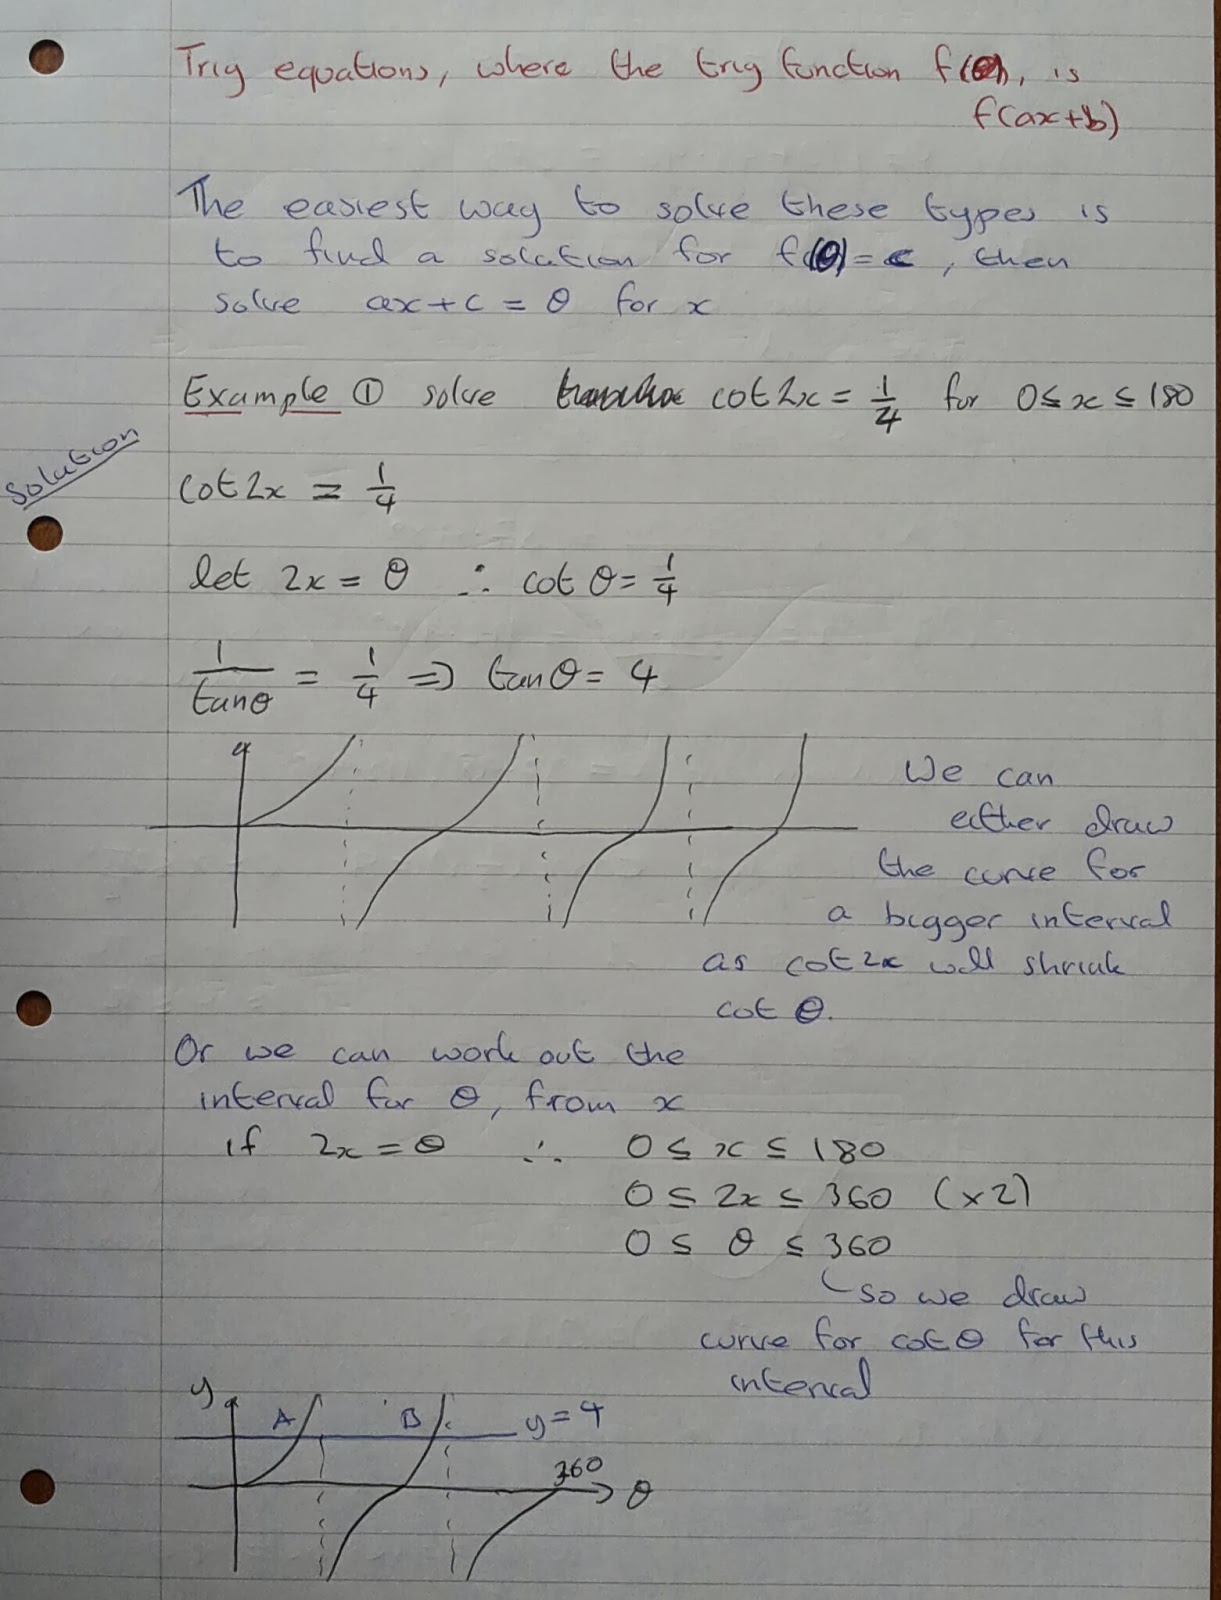 Trig equations, where the trig function f(θ), is
f(ax+b)
The easiest way to solve these types is
to find a solution for f(θ) = c, then
solve ax + c = θ for x
Example ① solve cot2x = 1/4 for 0 ≤ x ≤ 180
Solution
cot2x = 1/4
let 2x = θ ∴ cot θ = 1/4
1/tanθ = 1/4 => tanθ = 4
We can
either draw
the curve for
a bigger interval
as cot2x will shrink
cot θ.
Or we can work out the
interval for θ, from x
if 2x = θ ∴ 0 ≤ x ≤ 180
0 ≤ 2x ≤ 360 (x2)
0 ≤ θ ≤ 360
so we draw
curve for cotθ for this
interval
y
A B y = 4
360
θ